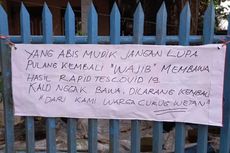 YANG ABIS MUDIK JANGAN LUPA
PULANG KEMBALI "WAJIB" MEMBAWA
HASIL RAPID TES COVID 19
KALO NGGAK BAWA, DILARANG KEMBALI
DARI KAMI WARGA CURUG WETAN